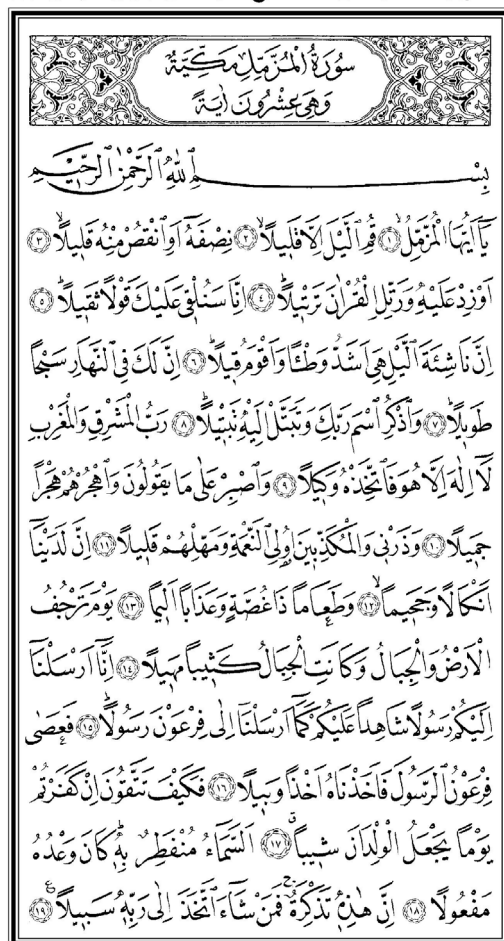 سُورَةُ الْمُزَّمِّلِ مَكِّيَّةٌ
وَهِيَ عِشْرُونَ اٰيَةً
بِسْمِ اللّٰهِ الرَّحْمٰنِ الرَّحٖيمِ
يَٓا اَيُّهَا الْمُزَّمِّلُۙ ﴿١﴾ قُمِ الَّيْلَ اِلَّا قَلٖيلًاۙ ﴿٢﴾ نِصْفَهُٓ اَوِ انْقُصْ مِنْهُ قَلٖيلًاۙ ﴿٣﴾
اَوْ زِدْ عَلَيْهِ وَرَتِّلِ الْقُرْاٰنَ تَرْتٖيلًاۜ ﴿٤﴾ اِنَّا سَنُلْقٖي عَلَيْكَ قَوْلًا ثَقٖيلًاۜ ﴿٥﴾
اِنَّ نَاشِئَةَ الَّيْلِ هِيَ اَشَدُّ وَطْـًٔا وَاَقْوَمُ قٖيلًاۜ ﴿٦﴾ اِنَّ لَكَ فِي النَّهَارِ سَبْحًا
طَوٖيلًاۜ ﴿٧﴾ وَاذْكُرِ اسْمَ رَبِّكَ وَتَبَتَّلْ اِلَيْهِ تَبْتٖيلًاۜ ﴿٨﴾ رَبُّ الْمَشْرِقِ وَالْمَغْرِبِ
لَٓا اِلٰهَ اِلَّا هُوَ فَاتَّخِذْهُ وَكٖيلًا ﴿٩﴾ وَاصْبِرْ عَلٰى مَا يَقُولُونَ وَاهْجُرْهُمْ هَجْرًا
جَمٖيلًا ﴿١٠﴾ وَذَرْنٖي وَالْمُكَذِّبٖينَ اُو۬لِي النَّعْمَةِ وَمَهِّلْهُمْ قَلٖيلًا ﴿١١﴾ اِنَّ لَدَيْنَٓا
اَنْكَالًا وَجَحٖيمًاۙ ﴿١٢﴾ وَطَعَامًا ذَا غُصَّةٍ وَعَذَابًا اَلٖيمًا ﴿١٣﴾ يَوْمَ تَرْجُفُ
الْاَرْضُ وَالْجِبَالُ وَكَانَتِ الْجِبَالُ كَثٖيبًا مَهٖيلًا ﴿١٤﴾ اِنَّٓا اَرْسَلْنَٓا
اِلَيْكُمْ رَسُولًا شَاهِدًا عَلَيْكُمْ كَمَٓا اَرْسَلْنَٓا اِلٰى فِرْعَوْنَ رَسُولًاۜ ﴿١٥﴾ فَعَصٰى
فِرْعَوْنُ الرَّسُولَ فَاَخَذْنَاهُ اَخْذًا وَبٖيلًا ﴿١٦﴾ فَكَيْفَ تَتَّقُونَ اِنْ كَفَرْتُمْ
يَوْمًا يَجْعَلُ الْوِلْدَانَ شٖيبًاۗ ﴿١٧﴾ اَلسَّمَٓاءُ مُنْفَطِرٌ بِهٖۜ كَانَ وَعْدُهُ
مَفْعُولًا ﴿١٨﴾ اِنَّ هٰذِهٖ تَذْكِرَةٌۚ فَمَنْ شَٓاءَ اتَّخَذَ اِلٰى رَبِّهٖ سَبٖيلًا ﴿١٩﴾